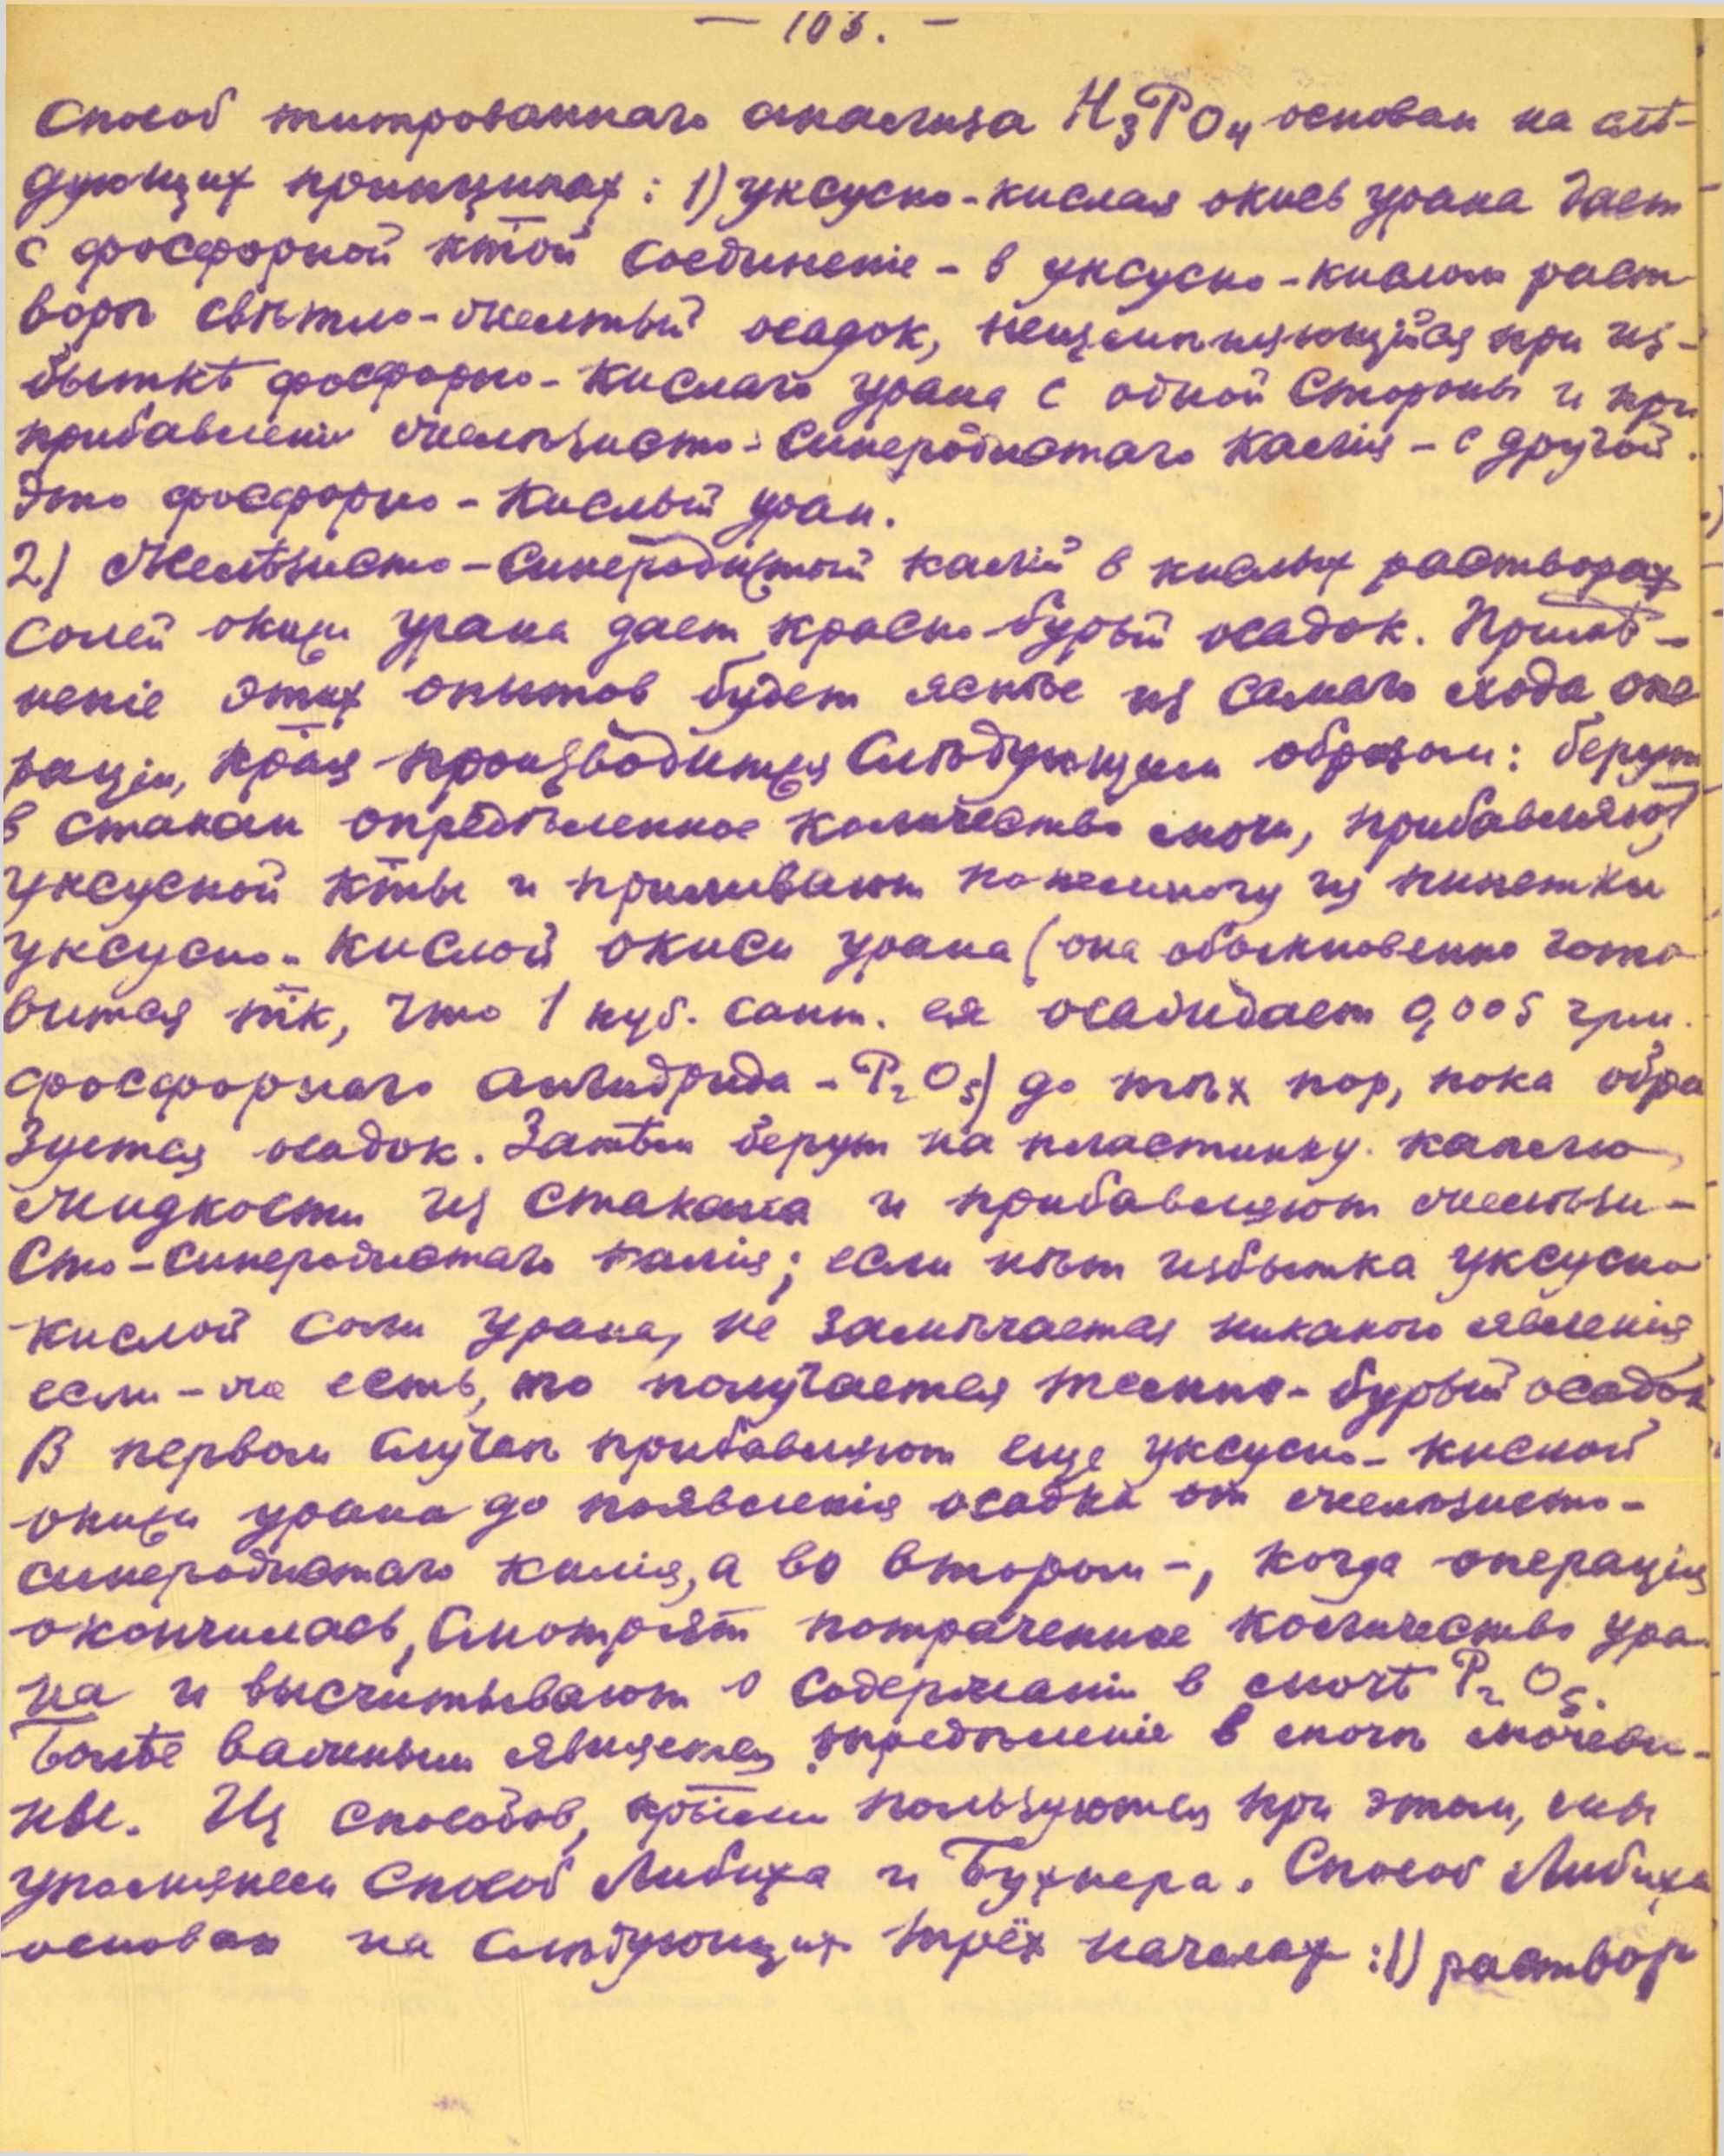 — 103. —
Способ титрованнаго анализа H₃PO₄ основан на слѣ-
дующих принципах: 1) уксусно-кислая окись урана дает
с фосфорной к̅т̅ой соединеніе - в уксусно-кислом раст
ворѣ свѣтло-желтый осадок, при из-
быткѣ фосфорно-кислаго урана с одной стороны и при
прибавлении желѣзисто-синеродистаго калія - с другой.
Это фосфорно-кислый уран.
2) Желѣзисто-синеродистый калій в кислых растворах
солей окиси урана дает красно-бурый осадок. Примѣ-
неніе этих опытов будет яснѣе из самаго хода опе
раціи, к̅р̅ая производится слѣдующим образом: берут
в стакан опредѣленное количество мочи, прибавляют
уксусной к̅т̅ы и приливают понемногу из пипетки
уксусно-кислой окиси урана (она обыкновенно гото
вится т̅к, что 1 куб. сант. ея осаждает 0,005 грм.
фосфорнаго ангидрида - P₂O₅) до тѣх пор, пока обра
зуется осадок. Затѣм берут на пластинку каплю
жидкости из стакана и прибавляют желѣзи-
сто-синеродистаго калія; если нѣт избытка уксусно
кислой соли урана, не замѣчается никакого явленія,
если-же есть, то получается темно-бурый осадок
В первом случаѣ прибавляют еще уксусно-кислой
окиси урана до появленія осадка от желѣзисто-
синеродистаго калія, а во втором -, когда операція
окончилась, смотрят потраченное количество ура-
на и высчитывают о содержаніи в мочѣ P₂O₅.
Болѣе важным является опредѣленіе в мочѣ мочеви-
ны. Из способов, к̅р̅ыми пользуются при этом, мы
упомянем способ Либиха и Бухнера. Способ Либиха
основан на слѣдующих трёх началах: 1) раствор